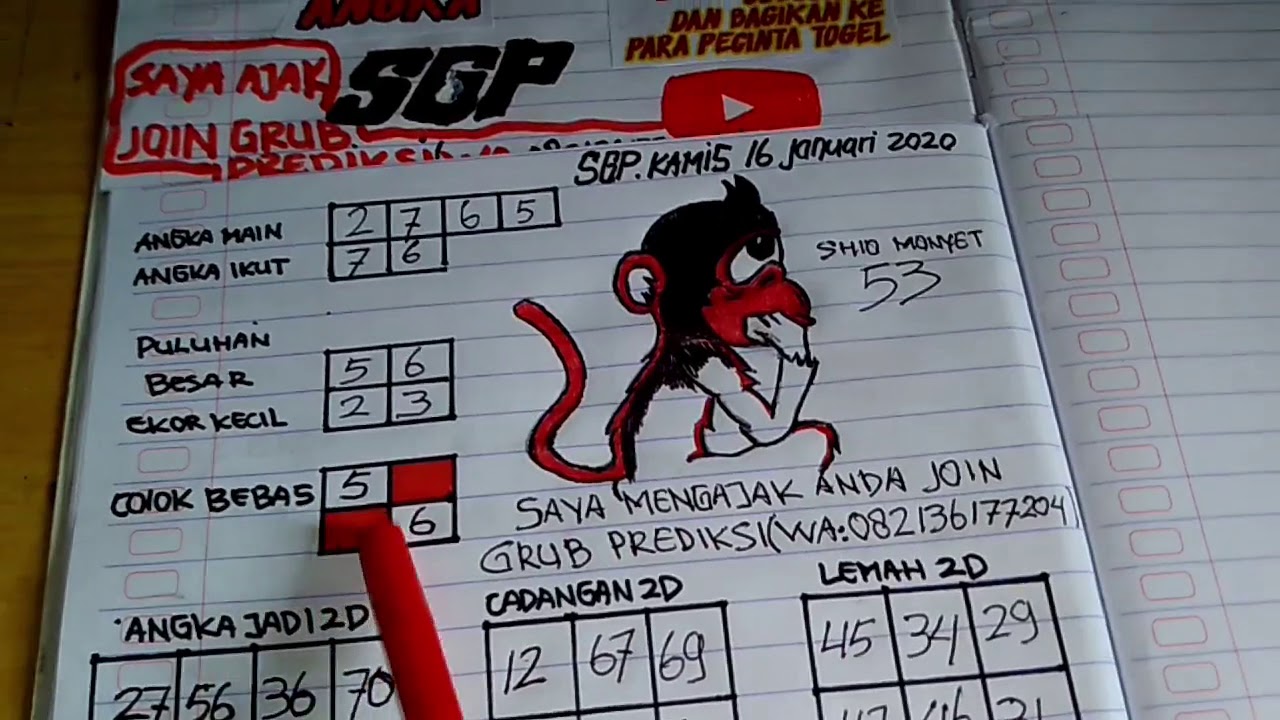 ANGKA
DAN BAGIKAN KE
PARA PECINTA TOGEL
SAYA AJAK
SGP
JOIN GRUB
PREDIKSI
SGP. KAMIS 16 Januari 2020
ANGKA MAIN 2 7 6 5
ANGKA IKUT 7 6
SHIO MONYET
53
PULUHAN
BESAR 5 6
EKOR KECIL 2 3
COLOK BEBAS 5
6
SAYA MENGAJAK ANDA JOIN
GRUB PREDIKSI(WA:082136177204)
ANGKA JADI 2D
27 56 36 70
CADANGAN 2D
12 67 69
LEMAH 2D
45 34 29